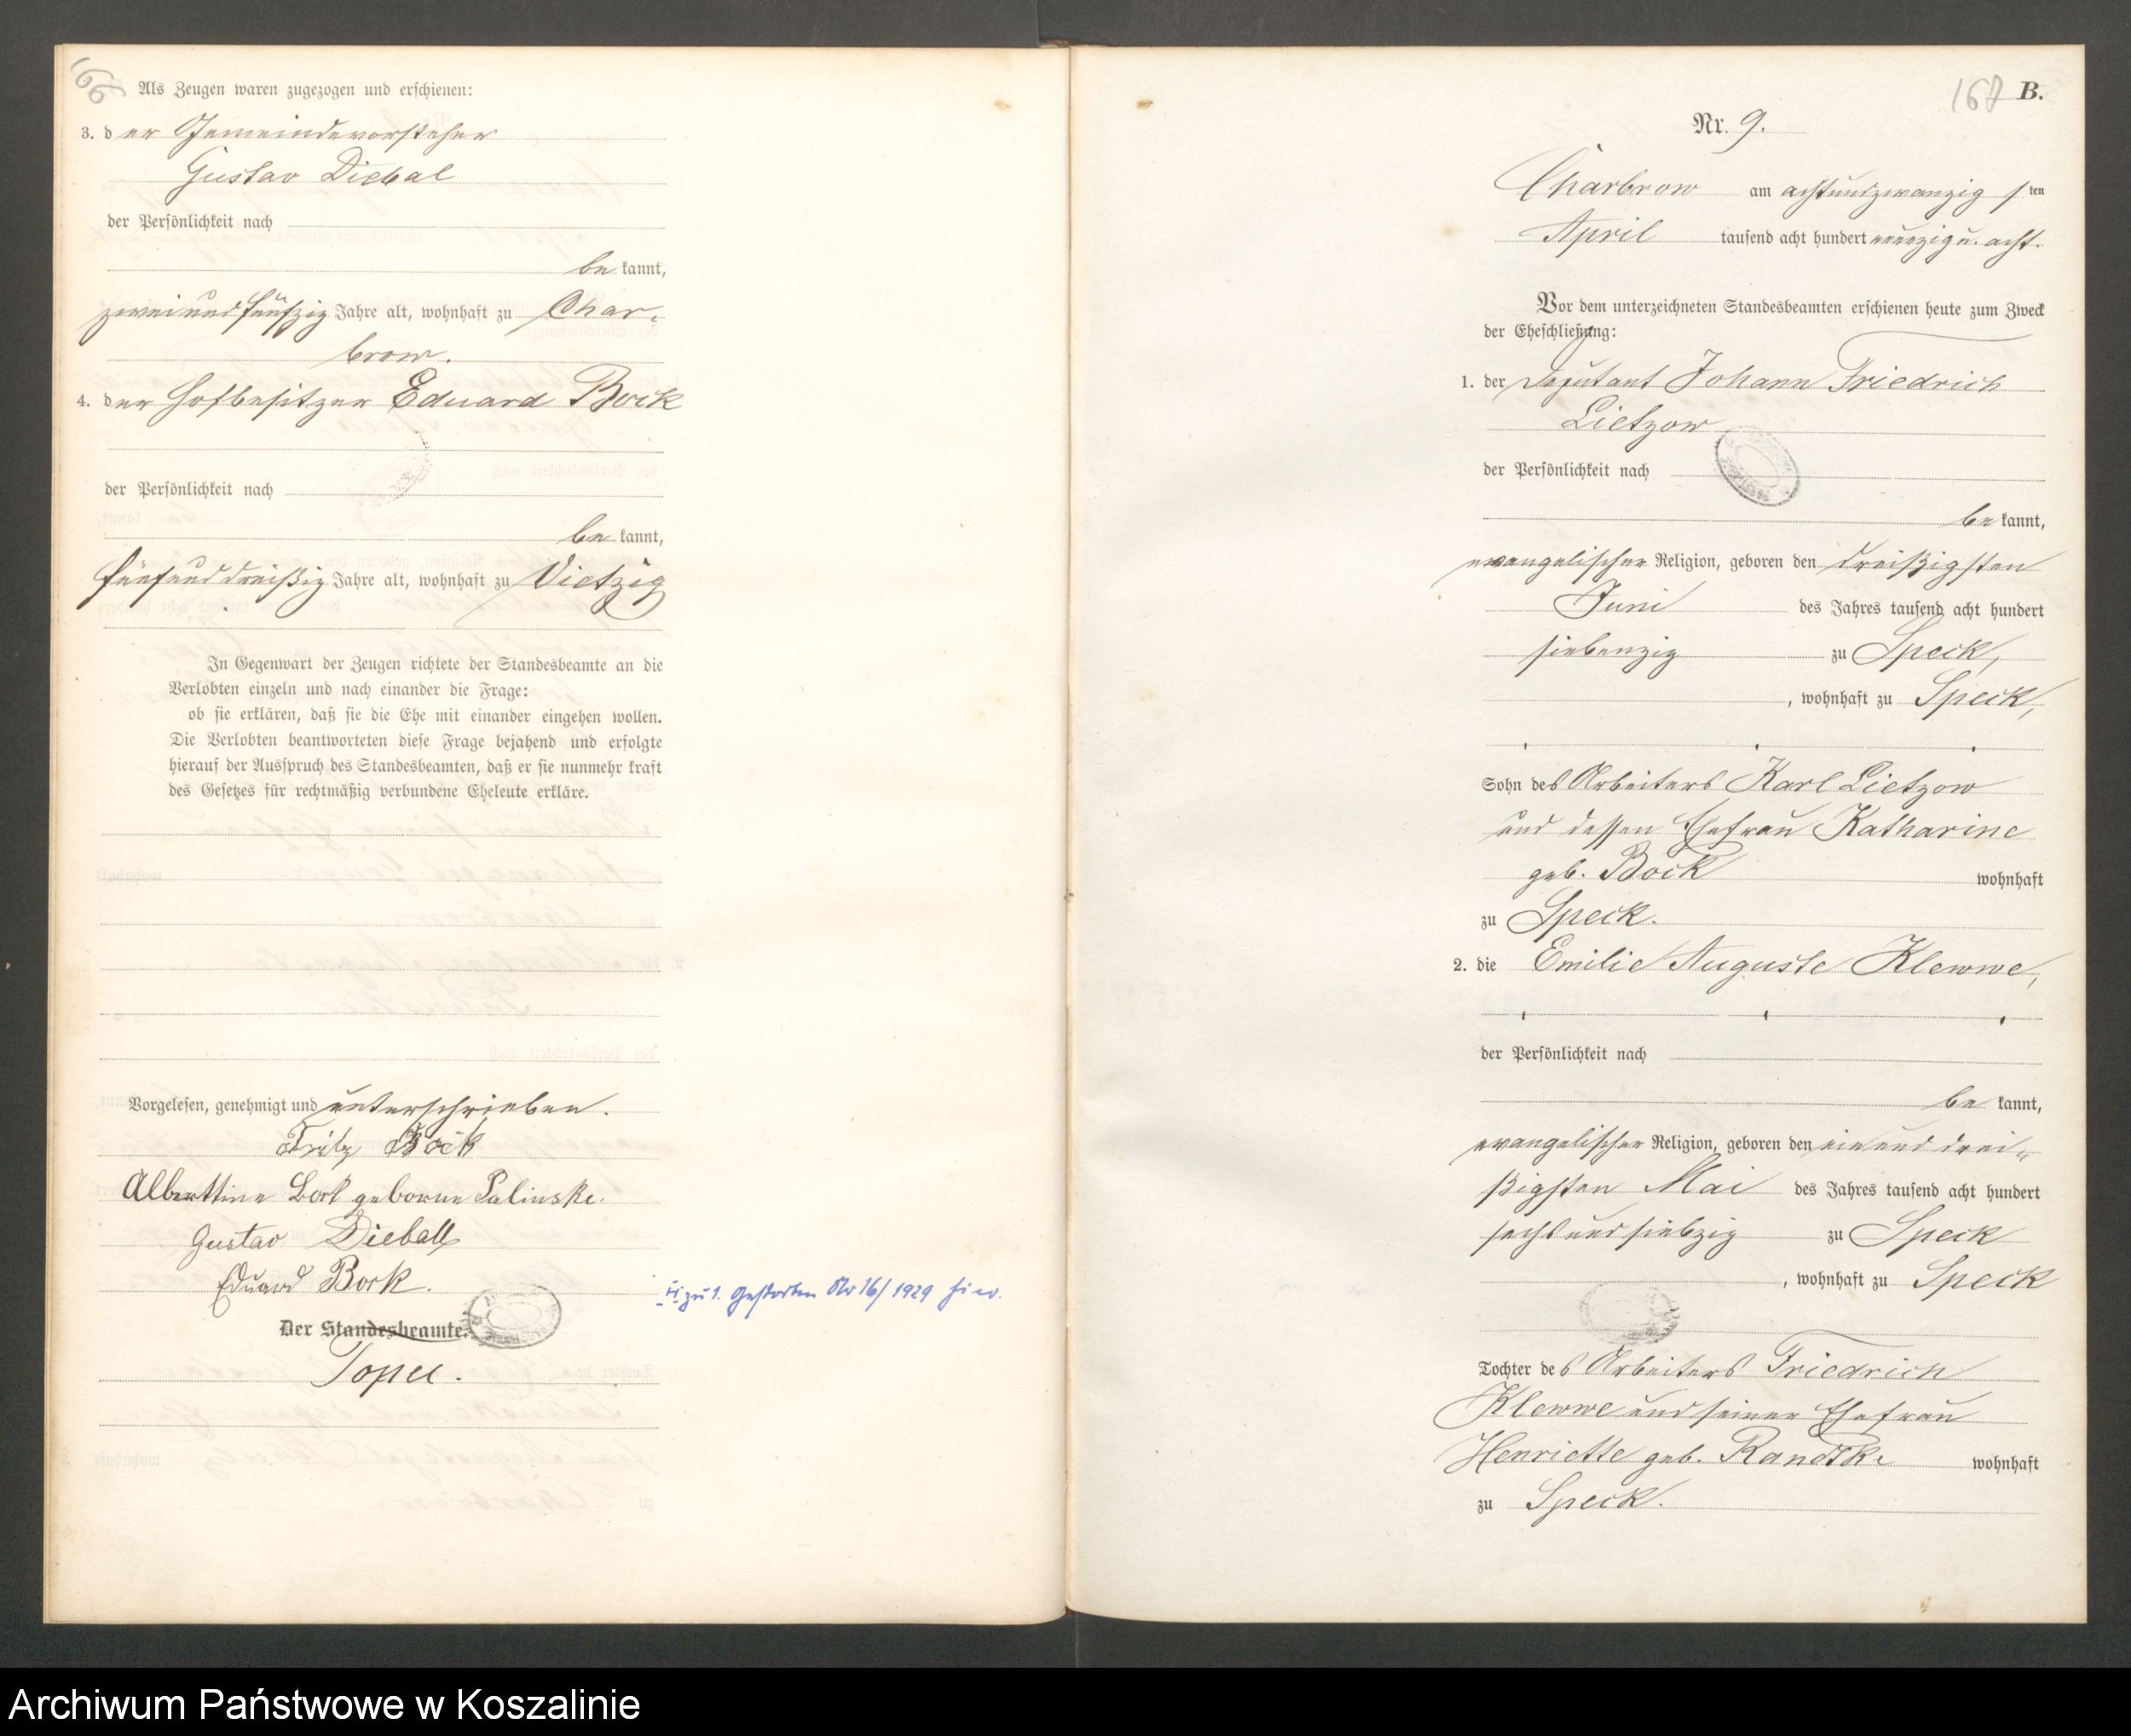 166
Als Zeugen waren zugezogen und erschienen:
3. der Gemeindevorsteher
Gustav Diebal
der Persönlichkeit nach
be kannt,
zweiundfünfzig Jahre alt, wohnhaft zu Char-
brow.
4. der Hofbesitzer Eduard Bock
der Persönlichkeit nach
be kannt,
fünfunddreißig Jahre alt, wohnhaft zu Vietzig
In Gegenwart der Zeugen richtete der Standesbeamte an die
Verlobten einzeln und nach einander die Frage:
ob sie erklären, daß sie die Ehe mit einander eingehen wollen.
Die Verlobten beantworteten diese Frage bejahend und erfolgte
hierauf der Ausspruch des Standesbeamten, daß er sie nunmehr kraft
des Gesetzes für rechtmäßig verbundene Eheleute erkläre.
Vorgelesen, genehmigt und unterschrieben.
Fritz Bock
Alberttine Bork geborne Palinske.
Gustav Dieball
Eduard Bork.
zu 1. Gestorben Nr 16/1929 hier.
Der Standesbeamte.
Topel.
167 B.
Nr. 9.
Charbrow am achtundzwanzigsten
April tausend acht hundert neunzig u. acht.
Vor dem unterzeichneten Standesbeamten erschienen heute zum Zweck
der Eheschließung:
1. der Deputant Johann Friedrich
Lietzow
der Persönlichkeit nach
be kannt,
evangelischer Religion, geboren den dreißigsten
Juni des Jahres tausend acht hundert
siebenzig zu Speck,
, wohnhaft zu Speck,
Sohn des Arbeiters Karl Lietzow
und dessen Ehefrau Katharine
geb. Bock wohnhaft
zu Speck.
2. die Emilie Auguste Klewwe,
der Persönlichkeit nach
be kannt,
evangelischer Religion, geboren den einunddrei-
ßigsten Mai des Jahres tausend acht hundert
sechsundsiebzig zu Speck
, wohnhaft zu Speck
Tochter des Arbeiters Friedrich
Klewwe und seiner Ehefrau
Henriette geb. Randtke wohnhaft
zu Speck.
Archiwum Państwowe w Koszalinie